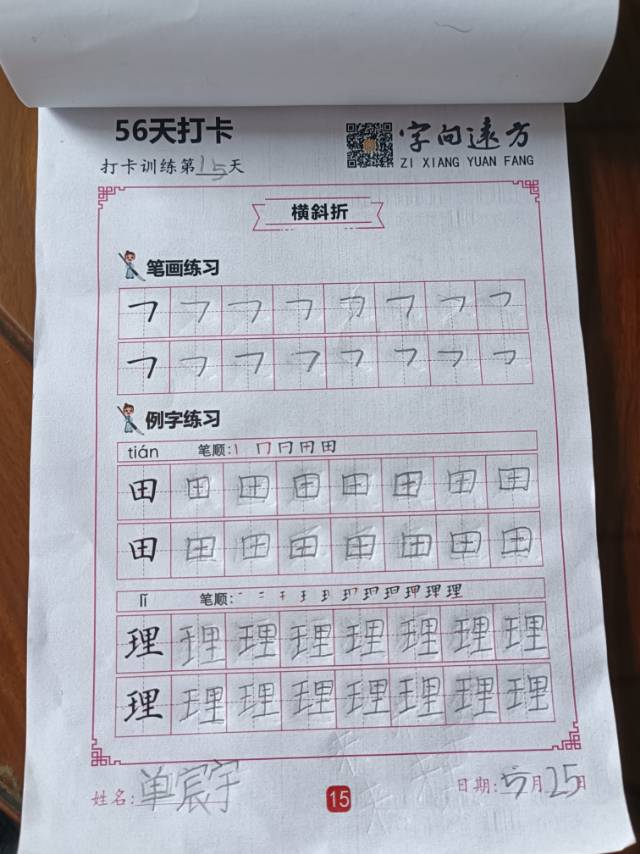 56天打卡
字向遠方
ZI XIANG YUAN FANG
打卡训练第15天
横斜折
笔画练习
㇇ ㇇ ㇇ ㇇ ㇇ ㇇ ㇇ ㇇
㇇ ㇇ ㇇ ㇇ ㇇ ㇇ ㇇ ㇇
例字练习
tián 笔顺:
田 田 田 田 田 田 田 田
田 田 田 田 田 田 田 田
lǐ 笔顺:
理 理 理 理 理 理 理 理
理 理 理 理 理 理 理 理
姓名:单宸宇
15
日期:5月25日